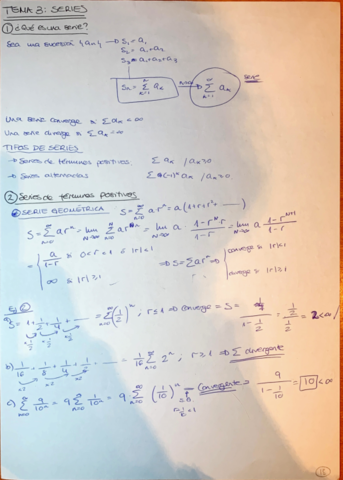 TEMA 3: SERIES
① ¿Qué es una serie?
Sea una sucesión {aₙ} → S₁ = a₁
S₂ = a₁ + a₂
S₃ = a₁ + a₂ + a₃
Sₙ = Σ aₖ → Σ aₙ serie
Una serie converge si Σ aₙ < ∞
Una serie diverge si Σ aₙ = ∞
TIPOS DE SERIES
→ Series de términos positivos: Σ aₙ / aₙ ≥ 0
→ Series alternadas Σ (-1)ⁿ aₙ / aₙ ≥ 0
② Series de términos positivos
SERIE GEOMÉTRICA S = Σ a rⁿ = a(1 + r + r² + ...)
S = Σ a rⁿ = lim Σ a rⁿ = lim a (1 - r^N · r)/(1 - r) = lim a (1 - r^(N+1))/(1 - r)
= { a/(1 - r) si 0 < r < 1 ó |r| < 1 ⇒ S = Σ a rⁿ ⇒ { converge si |r| < 1
∞ si |r| ≥ 1 diverge si |r| ≥ 1
a) S = 1 + 1/2 + 1/4 + ... = Σ (1/2)ⁿ, r < 1 ⇒ converge ⇒ S = 1/(1 - 1/2) = 1/(1/2) = 2 < ∞
b) 1/16 + 1/8 + 1/4 + 1/2 + ... = 1/16 Σ 2ⁿ, r ≥ 1 ⇒ Σ divergente
c) Σ 9/10ⁿ = 9 Σ 1/10ⁿ = 9 Σ (1/10)ⁿ convergente → 9/(1 - 1/10) = 10 < ∞
r = 1/10 < 1